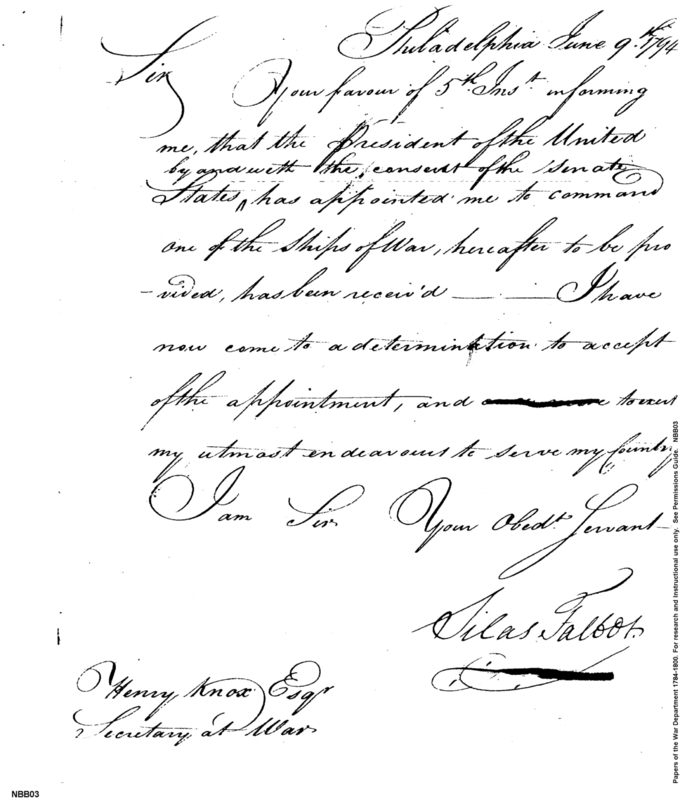 Philadelphia June 9.th 1794
Sir
Your favour of 5th. Inst. informing
me, that the President of the United
by and with the consent of the Senate
States, ^ has appointed me to command
one of the Ships of War, hereafter to be pro
-vided, has been receiv'd — . — I have
now come to a determination to accept
of the appointment, and to exert
my utmost endeavours to serve my Country
I am Sir Your Obedt. Servant
Silas Talbot
Henry Knox Esqr
Secretary at War
NBB03
Papers of the War Department 1784-1800. For research and instructional use only. See Permissions Guide. NBB03